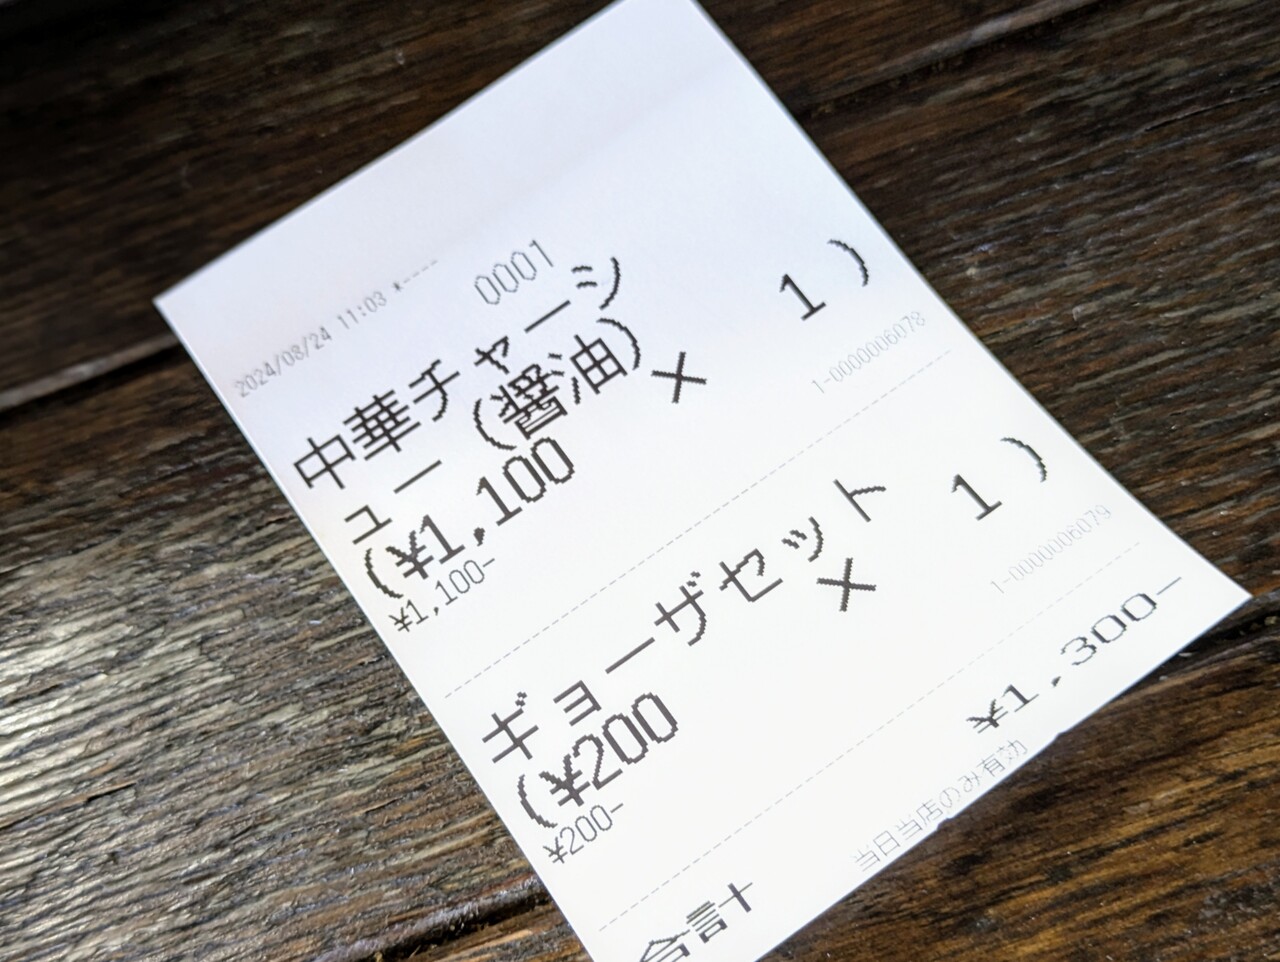 2024/08/24 11:03 *-----
0001
中華チャーシ
ュー (醤油)
(¥1,100 × 1 )
¥1,100-
1-0000006078
ギョーザセット
(¥200 × 1 )
¥200-
1-0000006079
合計 ¥1,300-
当日当店のみ有効